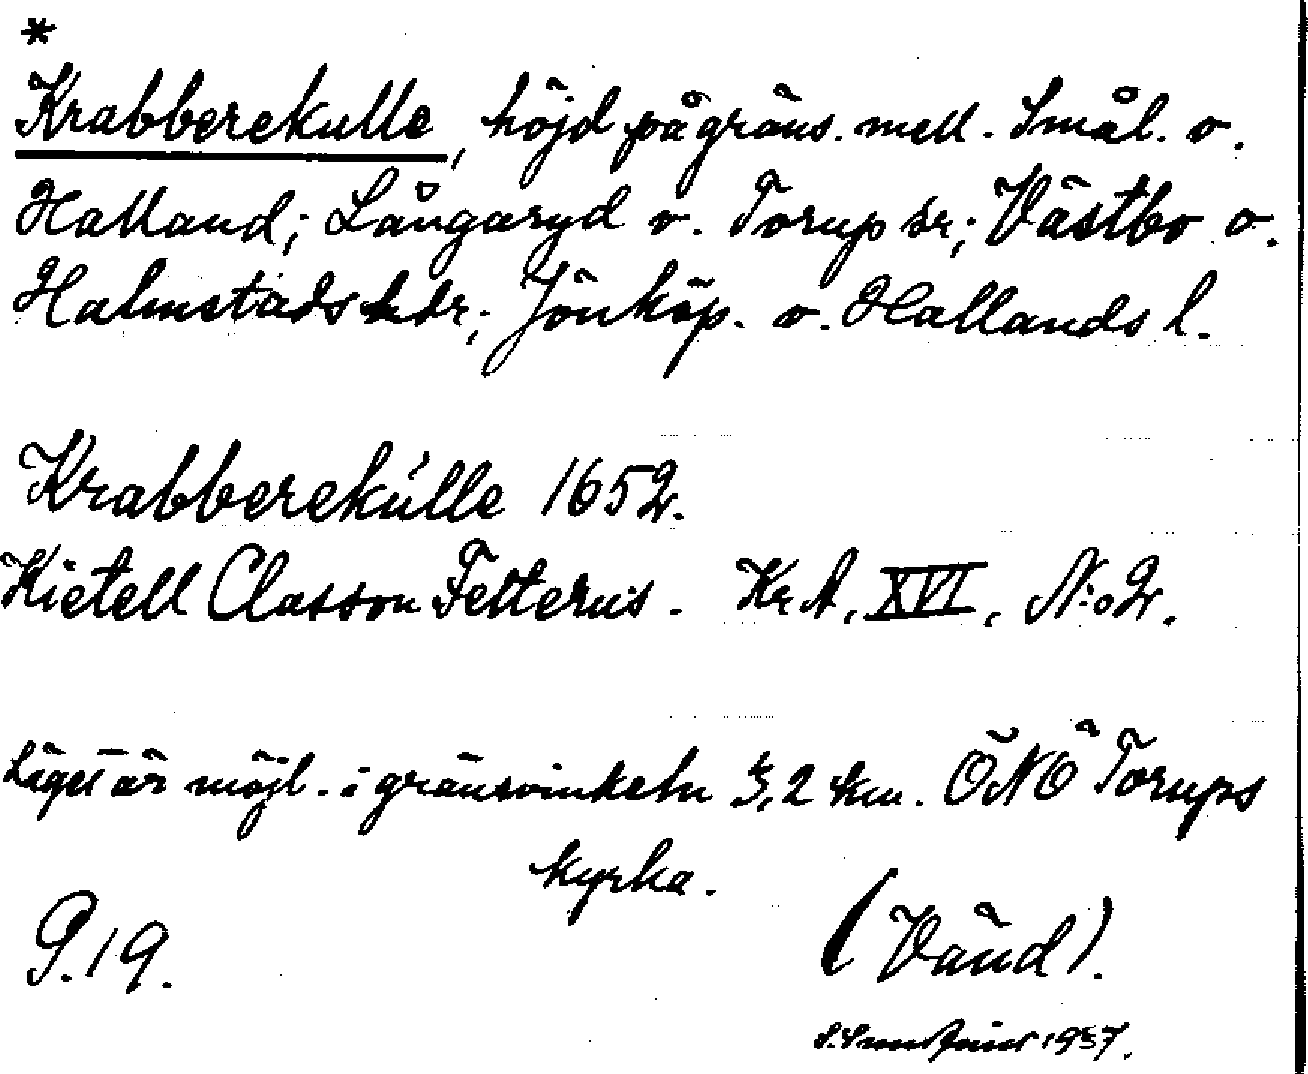 *
Krabberekulle, höjd på gräns. mell. Smål. o.
Halland; Långaryd o. Torup sr; Västbo o.
Halmstads hdr; Jönköp. o. Hallands l.
Krabberekùlle 1652.
Kietell Classon Felterus. Kr A, XVI, N:o 2.
Läget är möjl. i gränsvinkeln 3,2 km. ÖNÖ Torups
kyrka.
G. 19.
(Vänd).
1937.